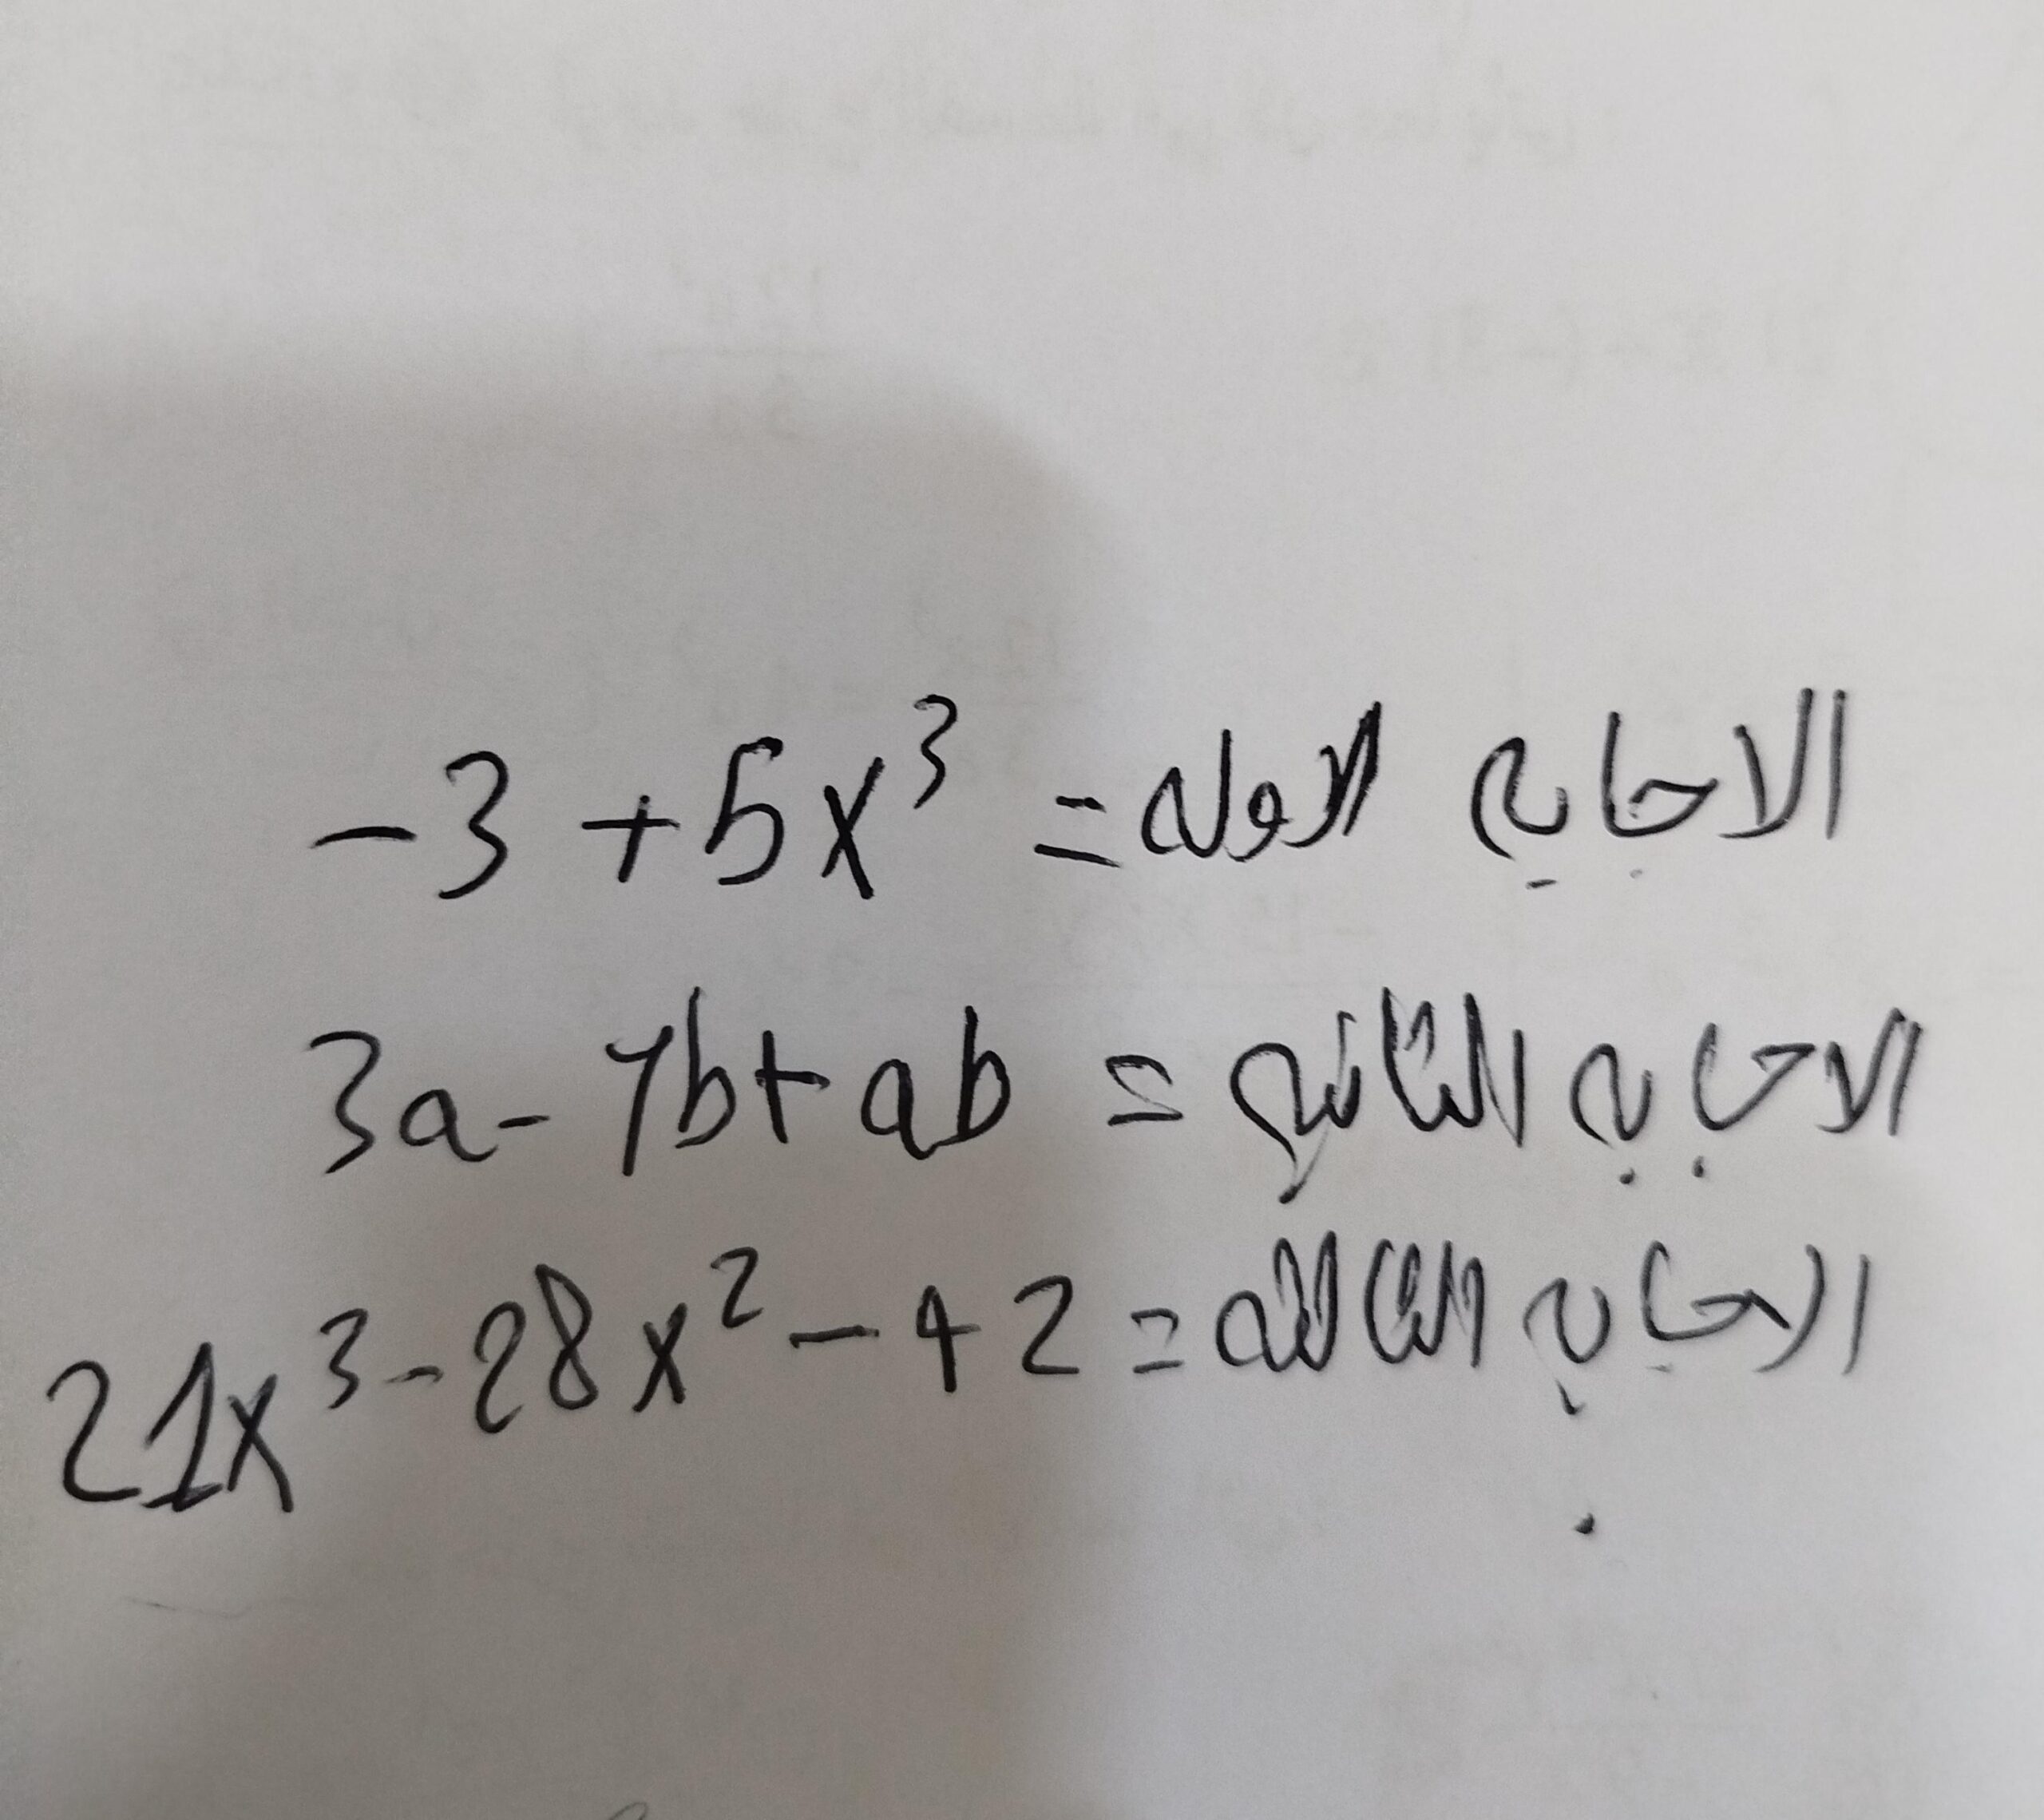 الاجابه الاوله = -3 + 5x³
الاجابه الثانيه = 3a - 7b + ab
الاجابه الثالثه = 21x³ - 28x² - 42